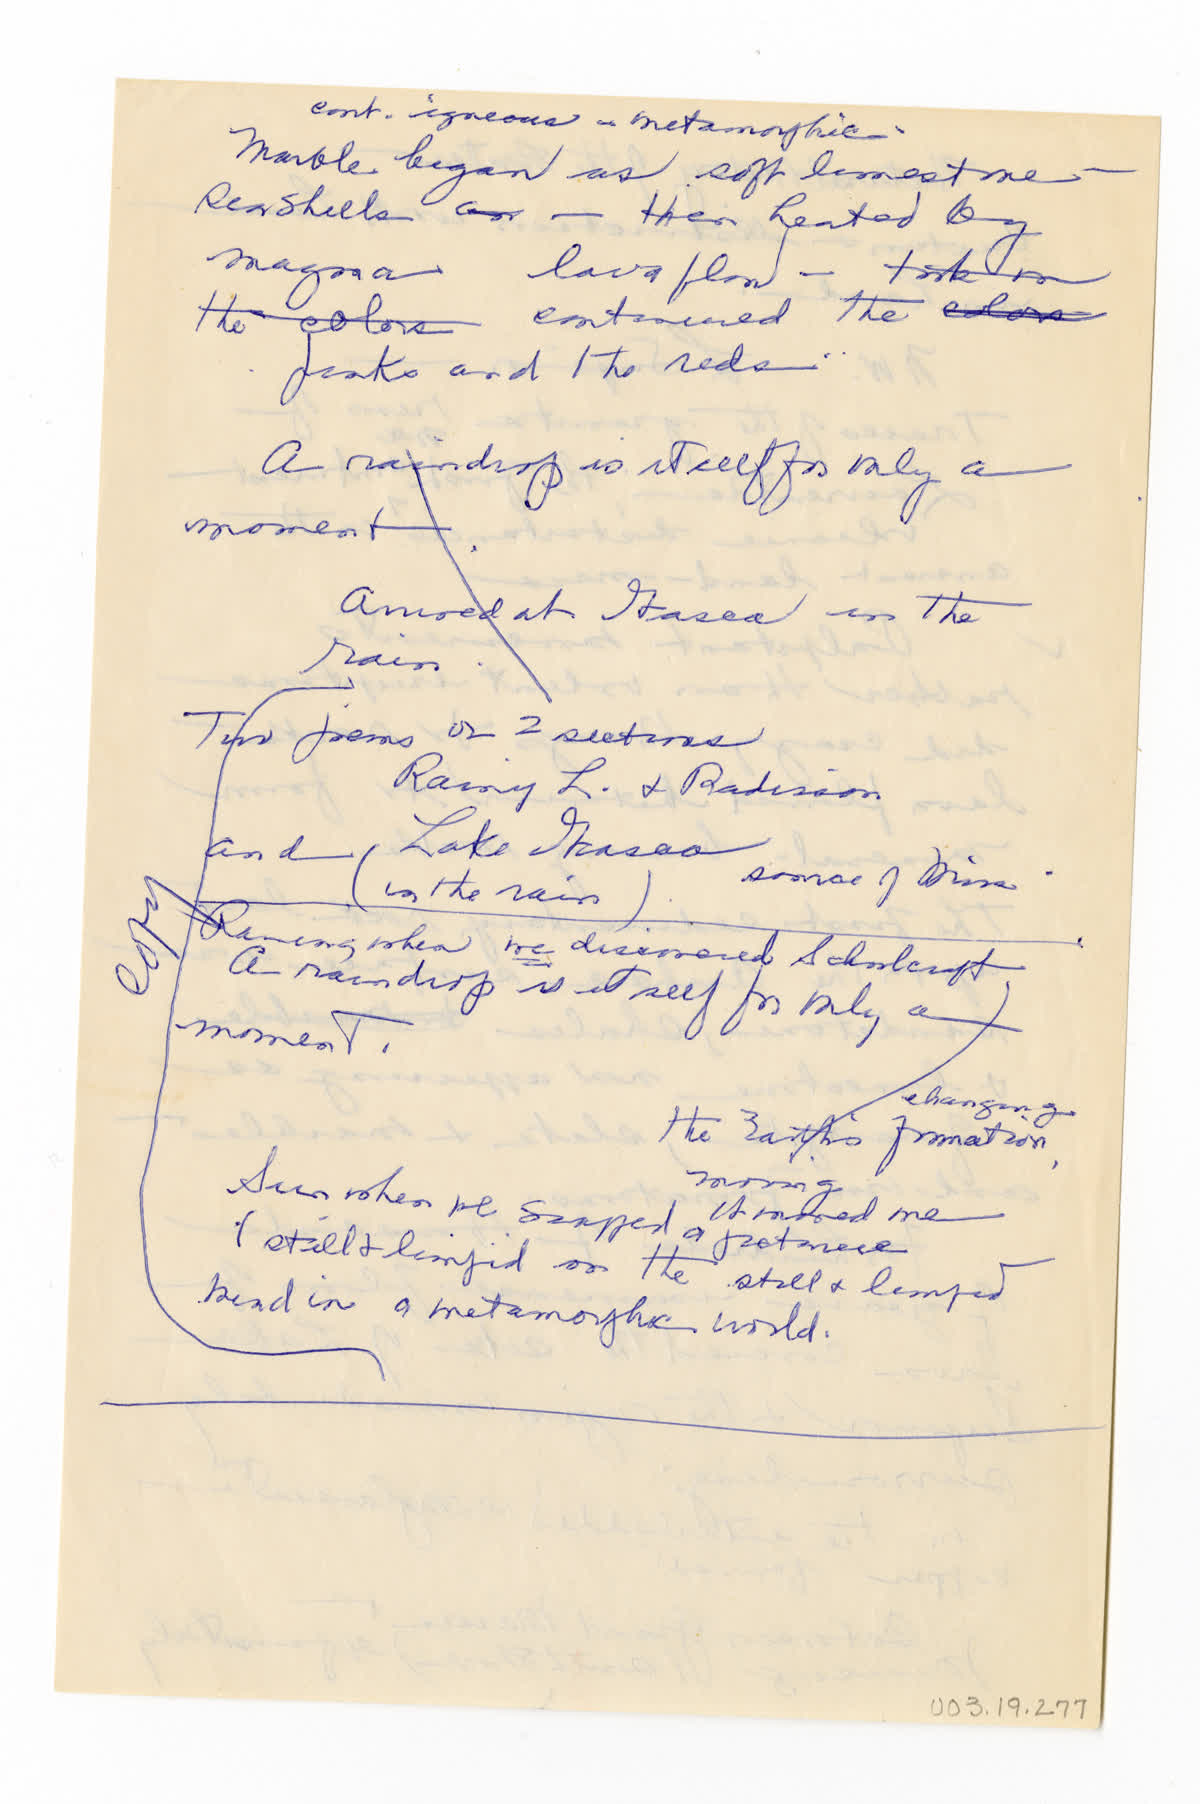 cont. igneous - metamorphic -
Marble began as soft limestone -
seashells an - then heated by
magma lava flow - took on
the colors continued the colors
pinks and the reds..
A raindrop is itself for only a
moment.
Arrived at Itasca in the
rain.
Two poems or 2 sections
Rainy L. & Radisson
and ( Lake Itasca source of Miss.
(in the rain)
copy
Raining when we discovered Schoolcraft
A raindrop is itself for only a
moment.
changing
the Earth's formation,
moving
Sun when we snapped a picture
it moved me
( still & limpid on the still & limpid
bend in a metamorphic world.
003.19.277